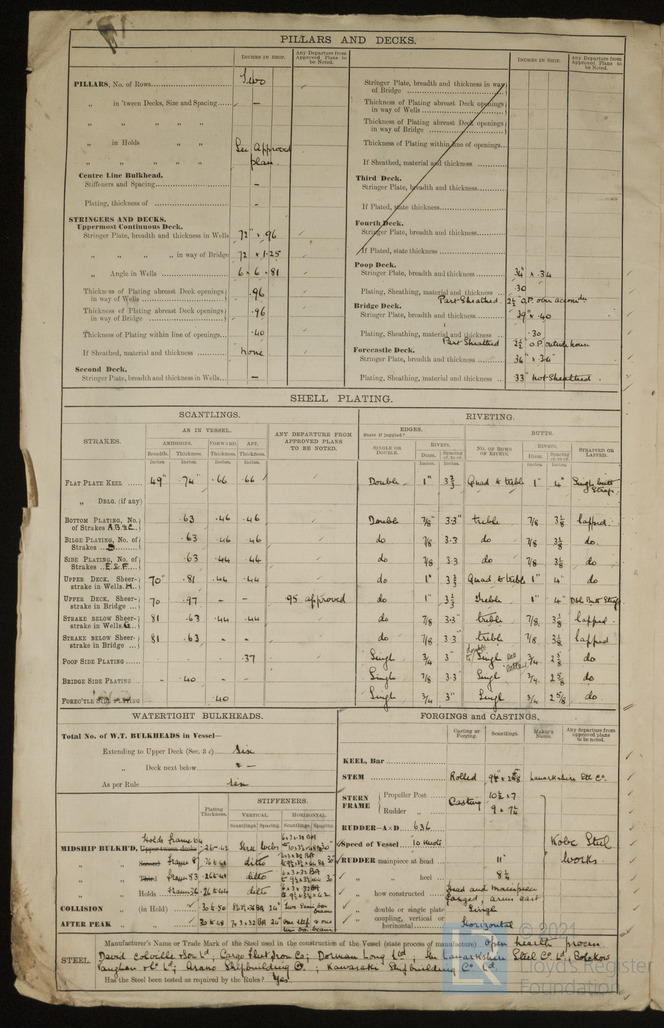 PILLARS AND DECKS.
INCHES IN SHIP.
Any Departure from Approved Plans to be Noted.
PILLARS, No. of Rows Two
„ in 'tween Decks, Size and Spacing –
„ „ „ „
„ in Holds „ „ See Approved
„ „ „ „ plan.
Centre Line Bulkhead.
Stiffeners and Spacing –
Plating, thickness of –
STRINGERS AND DECKS.
Uppermost Continuous Deck.
Stringer Plate, breadth and thickness in Wells 72" × .96
„ „ „ „ in way of Bridge 72 × 1.25
„ Angle in Wells 6 × 6 × .81
Thickness of Plating abreast Deck openings in way of Wells .96
Thickness of Plating abreast Deck openings in way of Bridge .96
Thickness of Plating within line of openings .40
If Sheathed, material and thickness none
Second Deck.
Stringer Plate, breadth and thickness in Wells –
INCHES IN SHIP.
Any Departure from Approved Plans to be Noted.
Stringer Plate, breadth and thickness in way of Bridge
Thickness of Plating abreast Deck openings in way of Wells
Thickness of Plating abreast Deck openings in way of Bridge
Thickness of Plating within line of openings
If Sheathed, material and thickness
Third Deck.
Stringer Plate, breadth and thickness
If Plated, state thickness
Fourth Deck.
Stringer Plate, breadth and thickness
If Plated, state thickness
Poop Deck.
Stringer Plate, breadth and thickness 34" × .34
Plating, Sheathing, material and thickness .30
Part Sheathed 2½" O.P. over accomdn
Bridge Deck.
Stringer Plate, breadth and thickness 39" × .40
Plating, Sheathing, material and thickness .30
Part Sheathed 2½" O.P. outside house
Forecastle Deck.
Stringer Plate, breadth and thickness 34" × .34"
Plating, Sheathing, material and thickness .33" not Sheathed.
SHELL PLATING.
SCANTLINGS.
RIVETING.
STRAKES.
AS IN VESSEL.
AMIDSHIPS. FORWARD. AFT.
Breadth. Thickness. Thickness. Thickness.
Inches. Inches. Inches. Inches.
ANY DEPARTURE FROM APPROVED PLANS TO BE NOTED.
EDGES.
State if joggled?
SINGLE OR DOUBLE.
RIVETS.
Diam. Spacing cr. to cr.
BUTTS.
NO. OF ROWS OF RIVETS.
RIVETS.
Diam. Spacing cr. to cr.
STRAPPED OR LAPPED.
FLAT PLATE KEEL 49" .74" .66 .66 Double 1" Quad & treble 1" 4" Single butt Strap.
„ DBLG. (if any)
BOTTOM PLATING, No. of Strakes A.B.&C. .63 .46 .46 Double 7/8" 3.3" treble 7/8 3⅛ lapped.
BILGE PLATING, No. of Strakes D .63 .46 .46 do 7/8 3.3 do 7/8 3⅛ do.
SIDE PLATING, No. of Strakes E.&F. .63 .44 .44 do 7/8 3.3 do 7/8 3⅛ do
UPPER DECK, Sheerstrake in Wells H. 70" .81 .44 .44 do 1" Quad. & treble 1" 4" do
UPPER DECK, Sheerstrake in Bridge 70 .97 – – .95 approved do 1" treble 1" 4" Dbl Butt Strap.
STRAKE BELOW Sheerstrake in Wells G. 81 .63 .44 .44 do 7/8 3.3" treble 7/8 3⅛ lapped.
STRAKE BELOW Sheerstrake in Bridge 81 .63 – – do 7/8 3.3" treble 7/8 3⅛ lapped
POOP SIDE PLATING .37 Single ¾ 3" Single ¾ 2⅝ do
BRIDGE SIDE PLATING .40 – Single 7/8 3.3 Single ¾ 2⅝ do
FORE'TLE SIDE PLATING .40 Single ¾ 3" Single ¾ 2⅝ do
WATERTIGHT BULKHEADS.
Total No. of W.T. BULKHEADS in Vessel—
Extending to Upper Deck (Sec. 3 c) Six
„ Deck next below –
As per Rule Six
Plating Thickness.
STIFFENERS.
VERTICAL. HORIZONTAL.
Scantlings. Spacing. Scantlings. Spacing.
Holds frame 64
MIDSHIP BULKH'D, Upper tween decks
„ „ Second frame 87 ditto
„ „ Third frame 83 ditto
„ „ Holds frame 36 ditto
COLLISION „ (in Hold)
AFTER PEAK „
FORGINGS and CASTINGS.
Casting or Forging. Scantlings. Maker's Name. Any departure from approved plans to be noted.
KEEL, Bar
STEM Rolled Lanarkshire Stl Co.
STERN FRAME
Propeller Post Casting 10½ × 7
Rudder „ 9 × 7½
RUDDER—A×D 636
Speed of Vessel 10 knots Kobe Steel
RUDDER mainpiece at head 11" Works
„ „ heel 8½
„ how constructed Head and Mainpiece forged, arms cast
„ double or single plate Single
„ coupling, vertical or horizontal Horizontal
STEEL.
Manufacturer's Name or Trade Mark of the Steel used in the construction of the Vessel (state process of manufacture). Open hearth process
David Colville & Sons Ld; Cargo Fleet Iron Co; Dorman Long Ltd; The Lanarkshire Steel Co. Ld, Bolckow
Vaughan & Co Ld; Asano Shipbuilding Co; Kawasaki Shipbuilding Co. Ld.
Has the Steel been tested as required by the Rules? Yes
© 2021
Lloyd's Register
Foundation